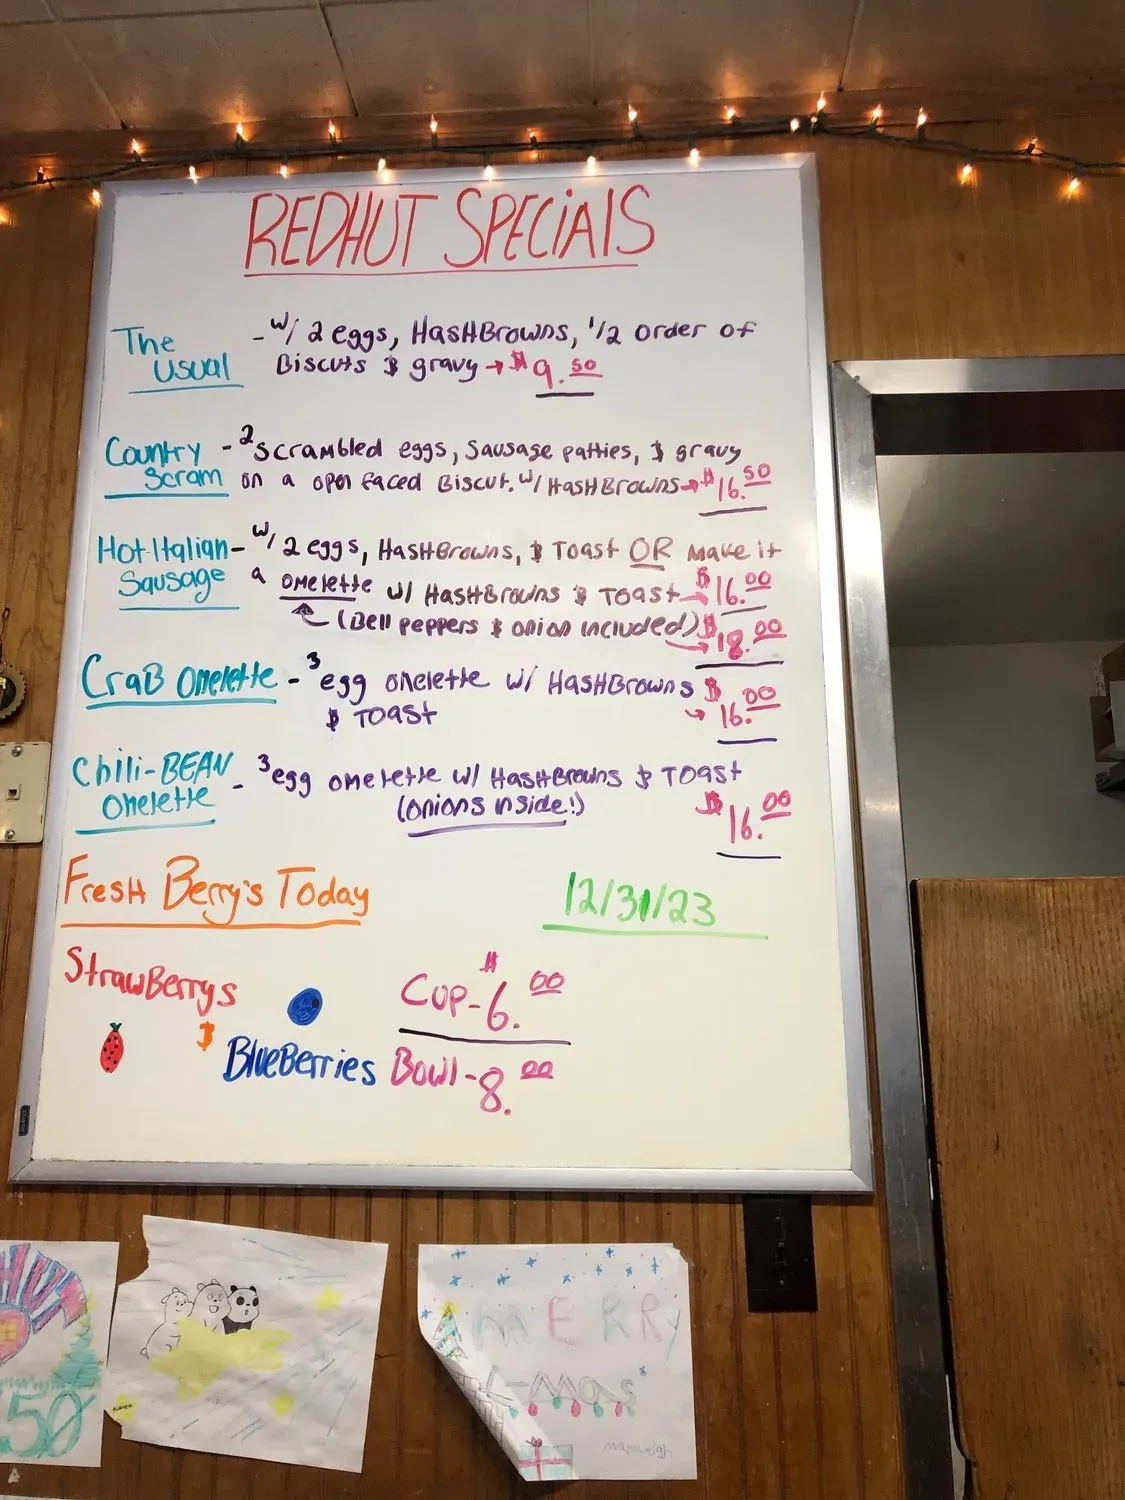 REDHUT SPECIALS
The Usual
- w/ 2 eggs, HASHBROWNS, 1/2 order of
Biscuts & gravy → $9.50
Country Scram
- 2 scrambled eggs, sausage patties, & gravy
on a open faced Biscut. w/ HASHBROWNS → $16.50
Hot-Italian Sausage
- w/ 2 eggs, HASHBROWNS, & TOAST OR make it
a omelette w/ HASHBROWNS & TOAST → $16.00
(Bell peppers & onion included) → $18.00
CRAB Omelette - 3 egg omelette w/ HASHBROWNS
& TOAST → $16.00
Chili-BEAN Omelette
- 3 egg omelette w/ HASHBROWNS & TOAST
(onions inside!) $16.00
Fresh Berry's Today
12/31/23
StrawBerrys
&
BlueBerries
Cup - $6.00
Bowl - 8.00
HUT
50
MERRY
X-mas